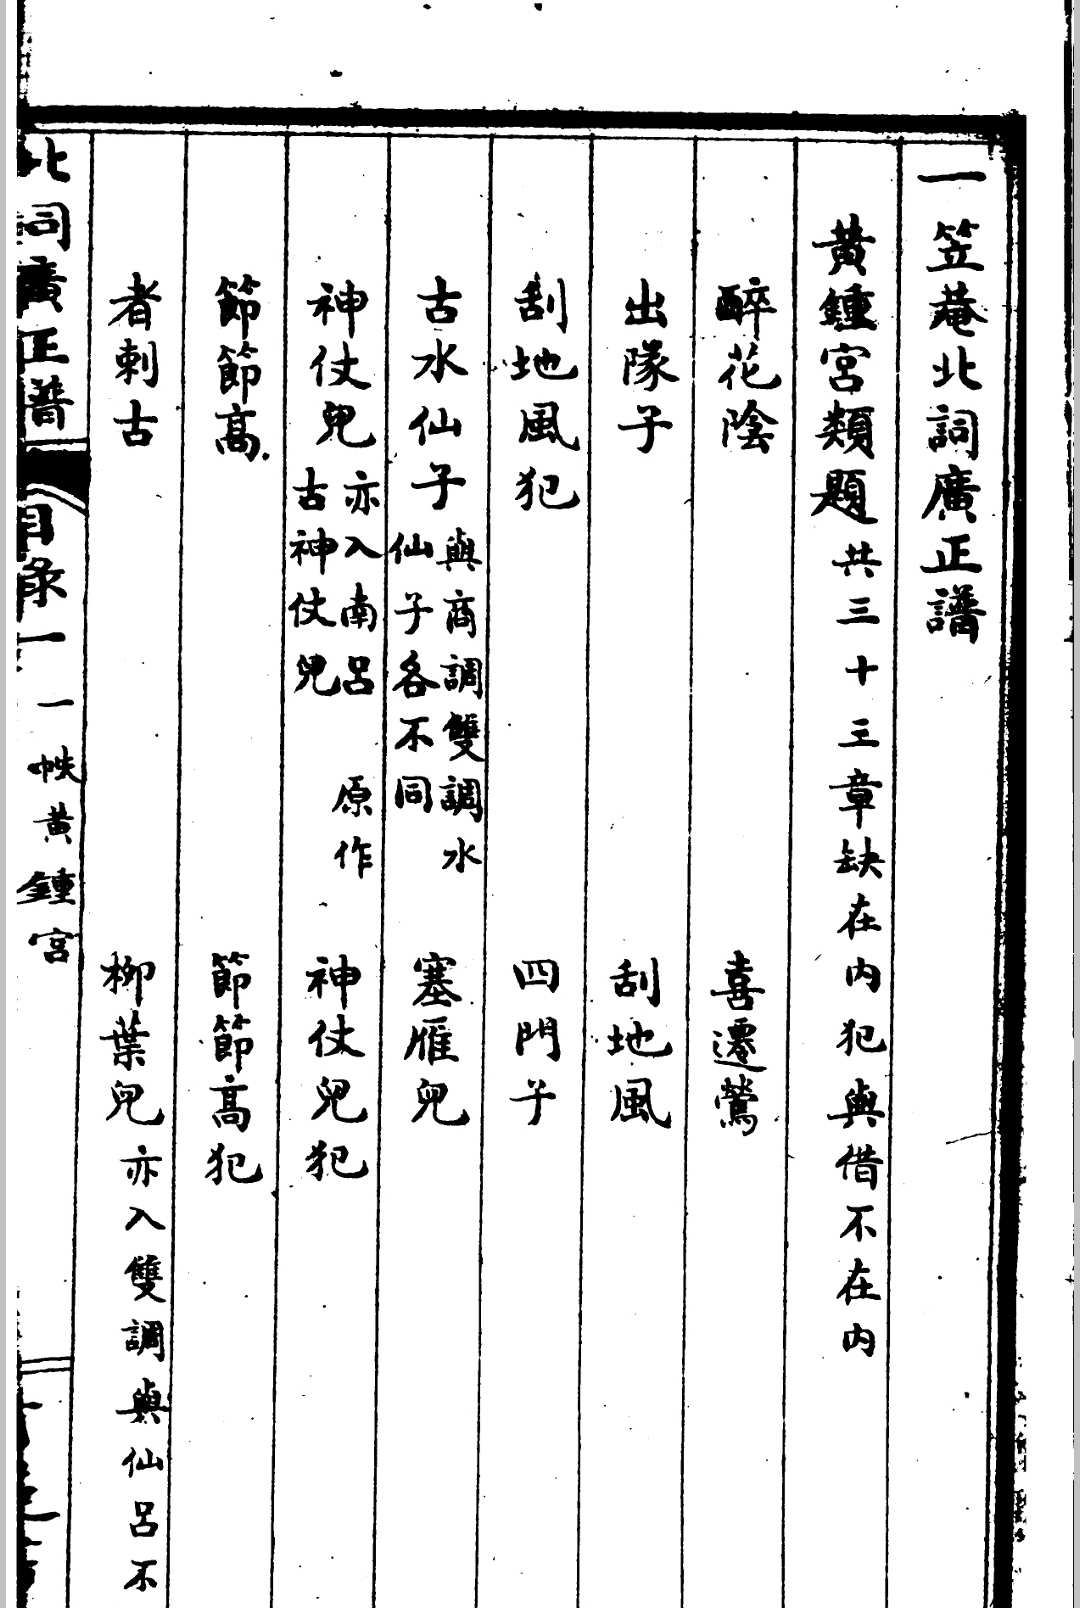 一笠菴北詞廣正譜
黃鍾宮類題共三十三章缺在內犯與借不在內
醉花陰 喜遷鶯
出隊子 刮地風
刮地風犯 四門子
古水仙子 與商調雙調水仙子各不同 塞雁兒
神仗兒 亦入南呂 原作古神仗兒 神仗兒犯
節節高 節節高犯
者剌古 柳葉兒 亦入雙調與仙呂不
北詞廣正譜 目錄一 一帙黃鍾宮